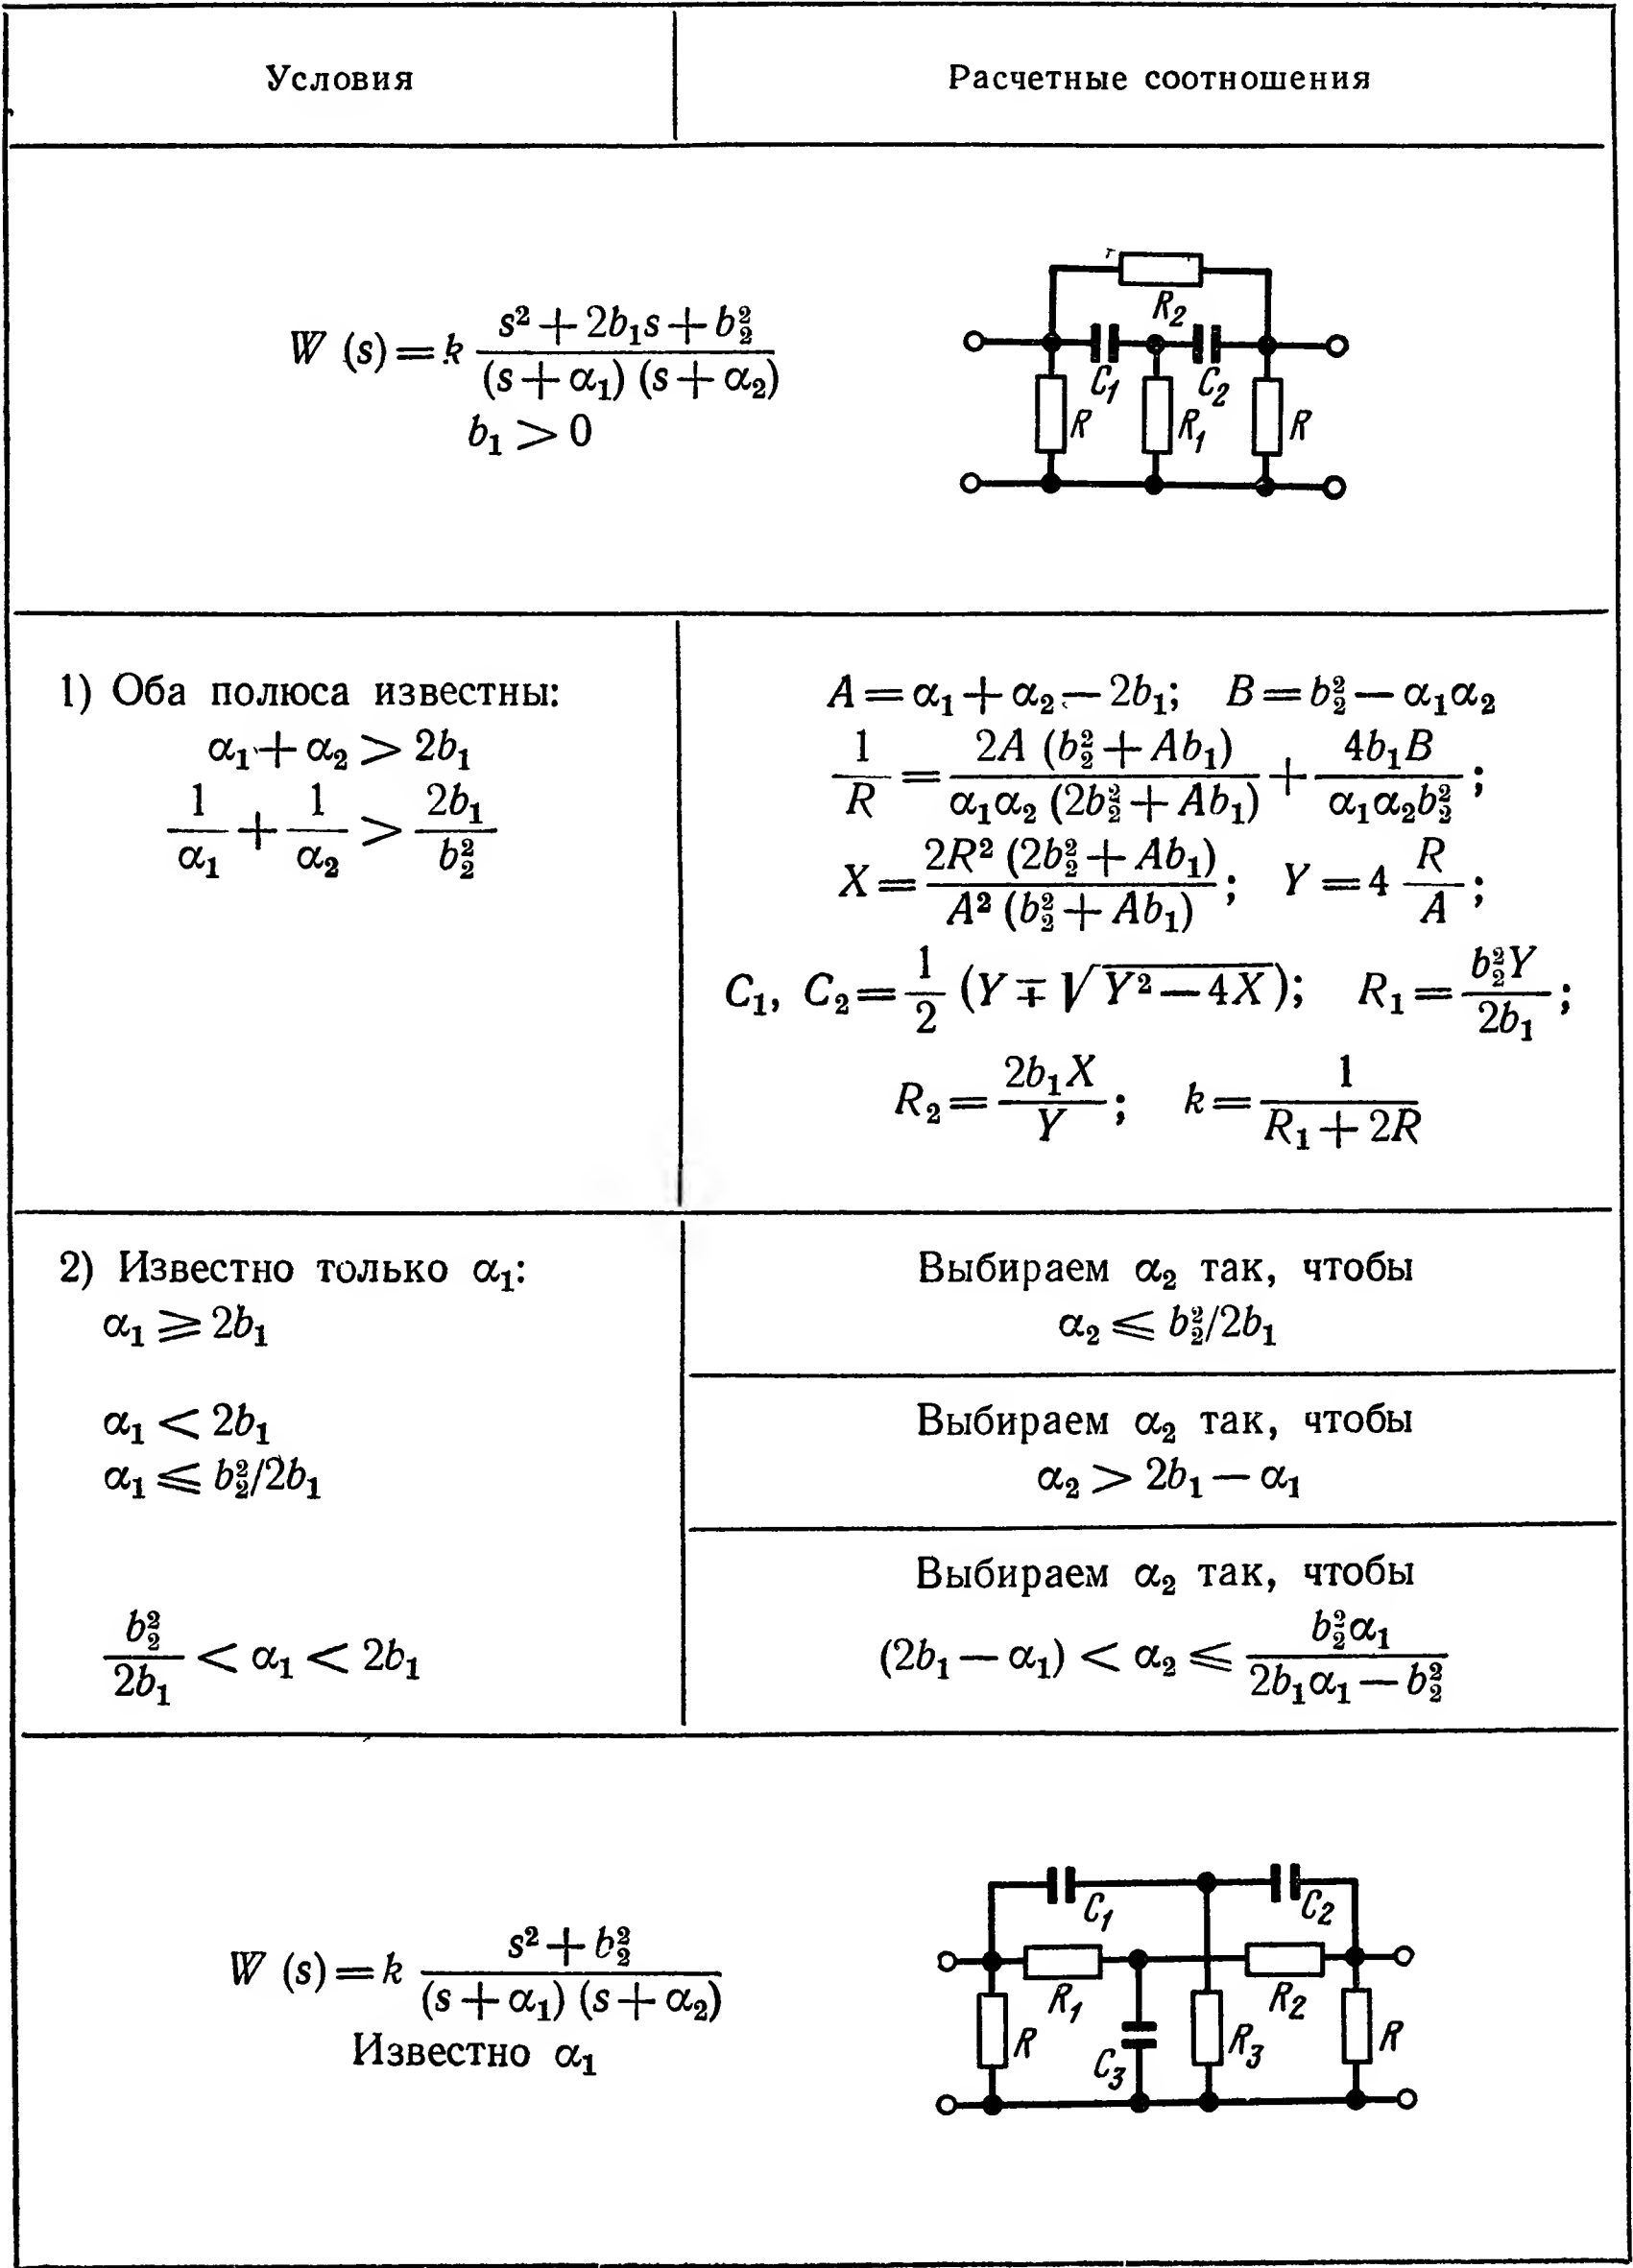 Условия
Расчетные соотношения
W (s) = k (s² + 2b₁s + b₂²) / ((s + α₁) (s + α₂))
b₁ > 0
R₂
C₁ C₂
R R₁ R
1) Оба полюса известны:
α₁ + α₂ > 2b₁
1/α₁ + 1/α₂ > 2b₁/b₂²
A = α₁ + α₂ − 2b₁; B = b₂² − α₁α₂
1/R = 2A (b₂² + Ab₁) / (α₁α₂ (2b₂² + Ab₁)) + 4b₁B / (α₁α₂b₂²);
X = 2R² (2b₂² + Ab₁) / (A² (b₂² + Ab₁)); Y = 4 R/A;
C₁, C₂ = 1/2 (Y ∓ √(Y² − 4X)); R₁ = b₂²Y / 2b₁;
R₂ = 2b₁X / Y; k = 1 / (R₁ + 2R)
2) Известно только α₁:
α₁ ⩾ 2b₁
Выбираем α₂ так, чтобы
α₂ ⩽ b₂²/2b₁
α₁ < 2b₁
α₁ ⩽ b₂²/2b₁
Выбираем α₂ так, чтобы
α₂ > 2b₁ − α₁
b₂²/2b₁ < α₁ < 2b₁
Выбираем α₂ так, чтобы
(2b₁ − α₁) < α₂ ⩽ b₂²α₁ / (2b₁α₁ − b₂²)
W (s) = k (s² + b₂²) / ((s + α₁) (s + α₂))
Известно α₁
C₁ C₂
R₁ R₂
R C₃ R₃ R